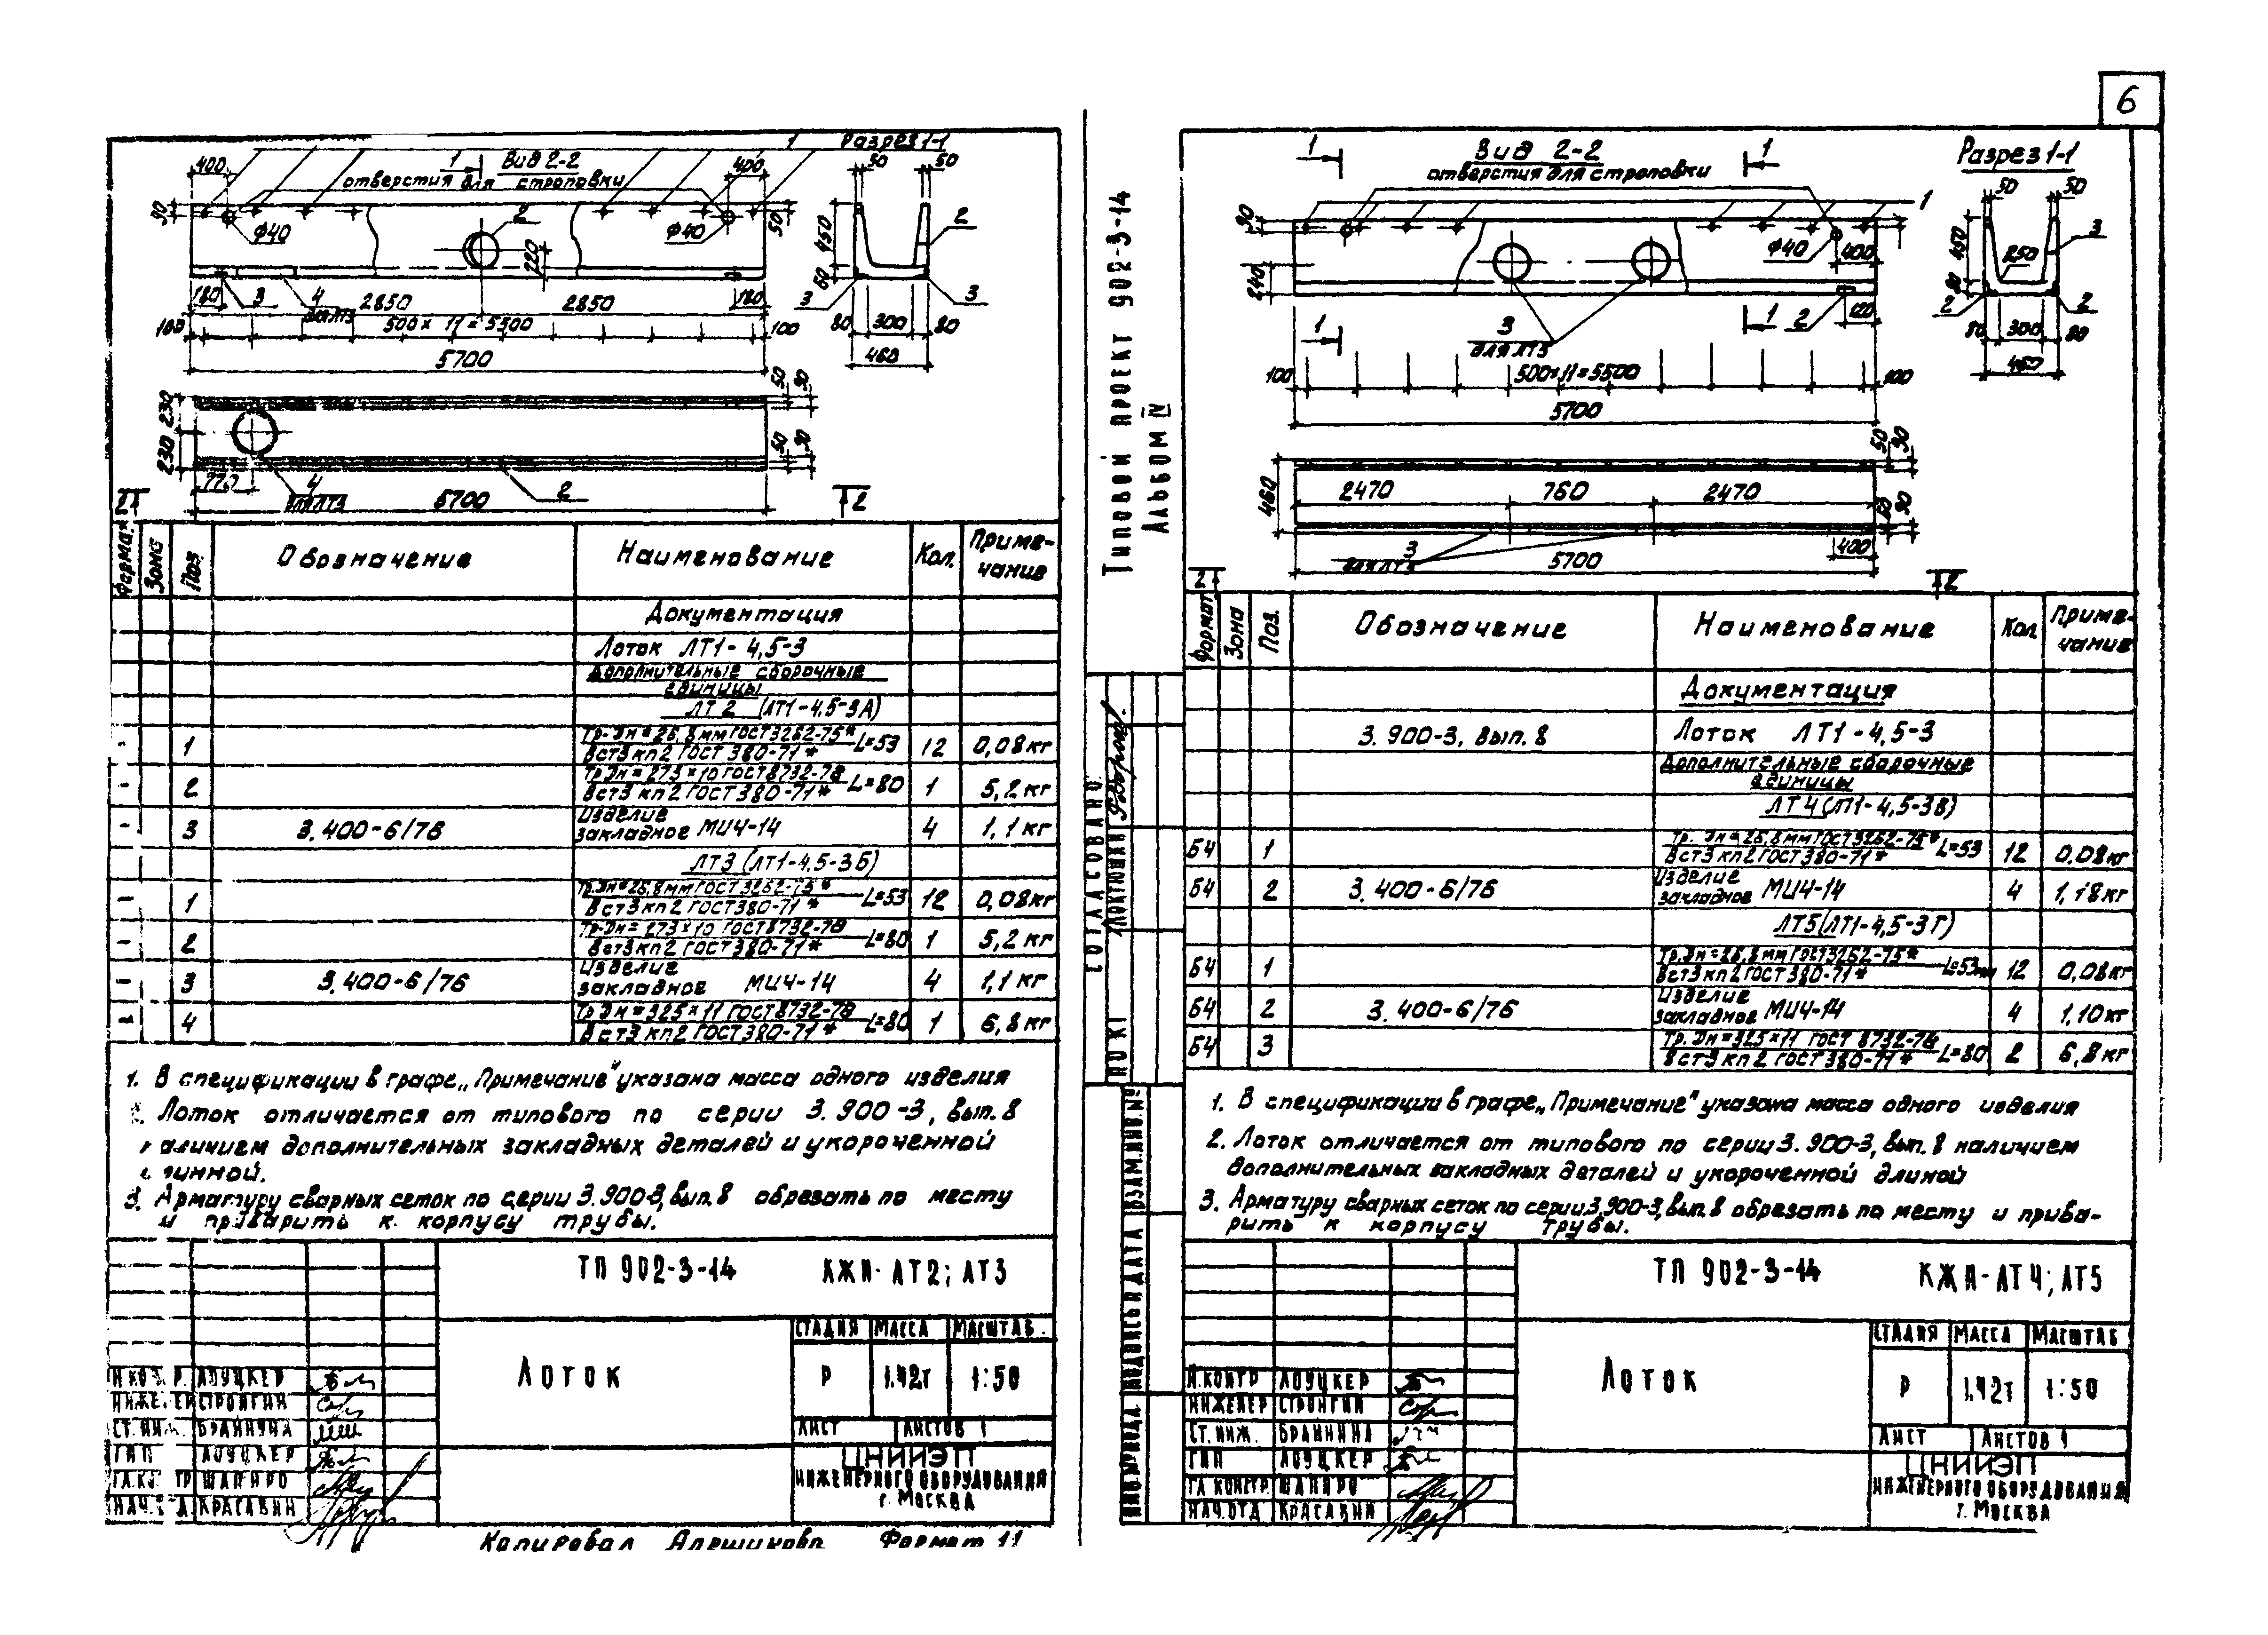 6
Разрез 1-1
1
400
1
Вид 2-2
400
50
50
отверстия для строповки
90
Ф40
2
Ф40
50
450
2
220
60
180
3
4
2850
2850
180
3
3
для ЛТ3
100
500 х 11 = 5500
100
80
300
80
5700
460
50
90
230
230
50
90
4
для ЛТ3
5700
2
2
2
Зона
Поз.
Обозначение
Наименование
Кол.
Приме-
чание
Документация
Лоток ЛТ1-4,5-3
Дополнительные сборочные
единицы
ЛТ2 (ЛТ1-4,5-3А)
- 1 Тр. Дн=26,8мм ГОСТ 3262-75* L=53 12 0,08кг
Вст3 кп2 ГОСТ 380-71*
2 Тр Дн=273×10 ГОСТ 8732-78 L=80 1 5,2кг
Вст3 кп2 ГОСТ 380-71*
Изделие
- 3 3.400-6/76 закладное МИ4-14 4 1,1кг
ЛТ3 (ЛТ1-4,5-3Б)
- 1 Тр. Дн=26,8мм ГОСТ 3262-75* L=53 12 0,08кг
Вст3кп2 ГОСТ 380-71*
- 2 Тр. Дн=273×10 ГОСТ 8732-78 L=80 1 5,2кг
Вст3 кп2 ГОСТ 380-71*
Изделие
- 3 3.400-6/76 закладное МИ4-14 4 1,1кг
- 4 Тр Дн=325×11 ГОСТ 8732-78 L=80 1 6,8кг
Вст3 кп2 ГОСТ 380-71*
1. В спецификации в графе „Примечание" указана масса одного изделия
Лоток отличается от типового по серии 3.900-3, вып. 8
наличием дополнительных закладных деталей и укороченной
3. Арматуру сварных сеток по серии 3.900-3, вып. 8 обрезать по месту
и приварить к корпусу трубы.
ТП 902-3-14 КЖИ-ЛТ2; ЛТ3
Лоток
СТАДИЯ МАССА МАСШТАБ.
Р 1.42т 1:50
ЛИСТ ЛИСТОВ 1
ЛОУЦКЕР
СТРОНГИН
БРАЙНИНА
ГИП ЛОУЦКЕР
ШАПИРО
КРАСАВИН
ЦНИИЭП
ИНЖЕНЕРНОГО ОБОРУДОВАНИЯ
г. МОСКВА
Копировал Формат 11
ТИПОВОЙ ПРОЕКТ 902-3-14
АЛЬБОМ IV
СОГЛАСОВАНО
1
Вид 2-2
1
Разрез 1-1
отверстия для строповки
50
50
1
90
Ф40
400
240
450
3
250
2
2
1
3
1
2
120
для ЛТ3
80
300
80
460
100
500×11=5500
100
5700
50
90
460
2470
760
2470
90
3
400
5700
2
2
Формат
Зона
Поз.
Обозначение
Наименование
Кол
Приме-
чание
Документация
3.900-3, вып. 8 Лоток ЛТ1-4,5-3
Дополнительные сборочные
единицы
ЛТ4 (ЛТ1-4,5-3В)
Б4 1 Тр. Дн=26,8мм ГОСТ 3262-75* L=53 12 0.08кг
Вст3 кп2 ГОСТ 380-71*
Изделие
Б4 2 3.400-6/76 закладное МИ4-14 4 1,18кг
ЛТ5 (ЛТ1-4,5-3Г)
Б4 1 Тр. Дн=26,8мм ГОСТ 3262-75* L=53мм 12 0,08кг
Вст3 кп2 ГОСТ 380-71*
Изделие
Б4 2 3.400-6/76 закладное МИ4-14 4 1,10кг
Б4 3 Тр. Дн=325×11 ГОСТ 8732-78 L=80 2 6,8кг
Вст3 кп2 ГОСТ 380-71*
1. В спецификации в графе „Примечание" указана масса одного изделия
2. Лоток отличается от типового по серии 3.900-3, вып. 8 наличием
дополнительных закладных деталей и укороченной длиной
3. Арматуру сварных сеток по серии 3.900-3, вып. 8 обрезать по месту и прива-
рить к корпусу трубы.
ТП 902-3-14 КЖИ-ЛТ4; ЛТ5
Лоток
СТАДИЯ МАССА МАСШТАБ
Р 1.42т 1:50
ЛИСТ ЛИСТОВ 1
Н.КОНТР ЛОУЦКЕР
ИНЖЕНЕР СТРОНГИН
СТ. ИНЖ. БРАЙНИНА
ГИП ЛОУЦКЕР
ШАПИРО
НАЧ.ОТД КРАСАВИН
ЦНИИЭП
ИНЖЕНЕРНОГО ОБОРУДОВАНИЯ
г. МОСКВА
ВЗАМ.ИНВ.№
ПОДПИСЬ И ДАТА